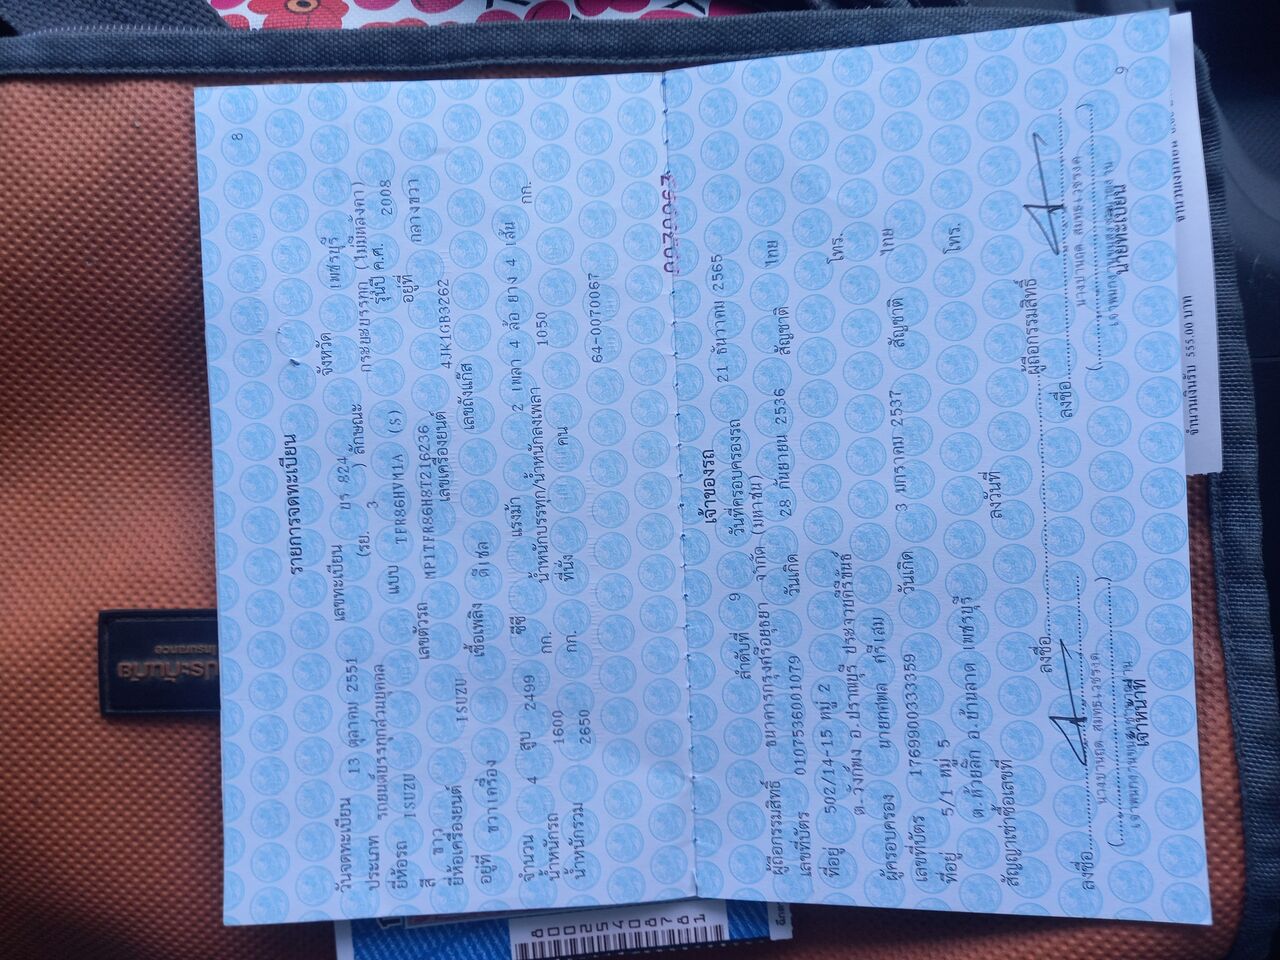 8
รายการจดทะเบียน
วันจดทะเบียน 13 ตุลาคม 2551 เลขทะเบียน บร 824 จังหวัด เพชรบุรี
ประเภท รถยนต์บรรทุกส่วนบุคคล (รย. 3 ) ลักษณะ กระบะบรรทุก (ไม่มีหลังคา)
ยี่ห้อรถ ISUZU แบบ TFR86HVM1A (S) รุ่นปี ค.ศ. 2008
สี ขาว เลขตัวรถ MP1TFR86H8T216236 อยู่ที่ กลางขวา
ยี่ห้อเครื่องยนต์ ISUZU เลขเครื่องยนต์ 4JK1GB3262
อยู่ที่ ขวาเครื่อง เชื้อเพลิง ดีเซล เลขถังแก๊ส
จำนวน 4 สูบ 2499 ซีซี แรงม้า 2 เพลา 4 ล้อ ยาง 4 เส้น
น้ำหนักรถ 1600 กก. น้ำหนักบรรทุก/น้ำหนักลงเพลา 1050 กก.
น้ำหนักรวม 2650 กก. ที่นั่ง คน
64-0070067
เจ้าของรถ
ลำดับที่ 9 วันที่ครอบครองรถ 21 ธันวาคม 2565
ผู้ถือกรรมสิทธิ์ ธนาคารกรุงศรีอยุธยา จำกัด (มหาชน)
เลขที่บัตร 0107536001079 วันเกิด 28 กันยายน 2536 สัญชาติ ไทย
ที่อยู่ 502/14-15 หมู่ 2
ต.วังก์พง อ.ปราณบุรี ประจวบคีรีขันธ์ โทร.
ผู้ครอบครอง นายทศพล ศรีเสม
เลขที่บัตร 1769900333359 วันเกิด 3 มกราคม 2537 สัญชาติ ไทย
ที่อยู่ 5/1 หมู่ 5
ต.ห้วยลึก อ.บ้านลาด เพชรบุรี โทร.
สัญญาเช่าซื้อเลขที่ ลงวันที่
ลงชื่อ ผู้ถือกรรมสิทธิ์
ลงชื่อ ลงชื่อ
เจ้าหน้าที่ นายทะเบียน
9
จำนวนเงินรับ 555.00 บาท
ประกันภัย
Insurance
8002540878